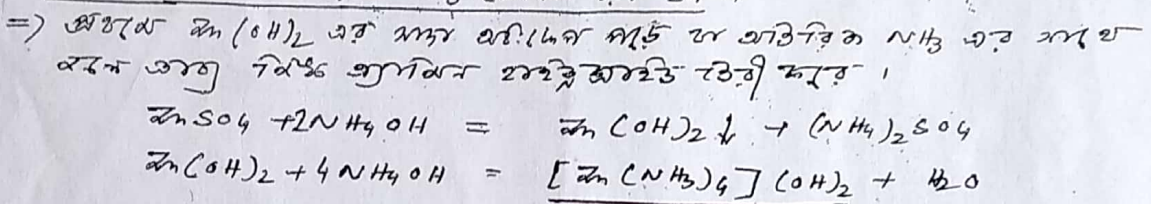 => প্রথমে Zn(OH)2 এর সাদা অধঃক্ষেপ পড়ে যা অতিরিক্ত NH3 এর সাথে
জিংক অ্যামিন হাইড্রোক্সাইড তৈরী করে ।
ZnSO4 + 2NH4OH = Zn(OH)2↓ + (NH4)2SO4
Zn(OH)2 + 4NH4OH = [Zn(NH3)4](OH)2 + H2O